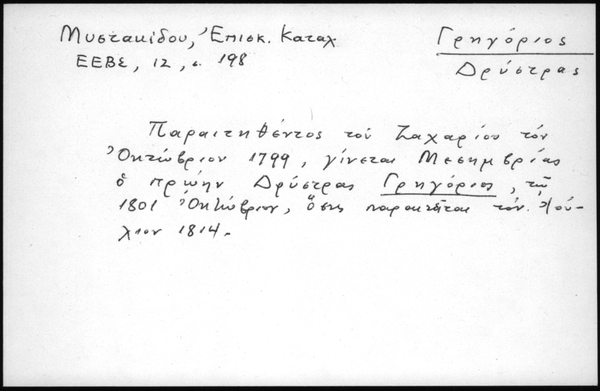 Μυστακίδου, Ἐπισκ. Καταλ
ΕΕΒΣ, 12, σ. 198
Γρηγόριος
Δρύστρας
Παραιτηθέντος τοῦ Ζαχαρίου τόν
Ὀκτώβριον 1799, γίνεται Μεσημβρίας
ὁ πρώην Δρύστρας Γρηγόριος, τῷ
1801 Ὀκτώβριον, ὅστις παραιτεῖται τόν Ἰού-
λιον 1814.